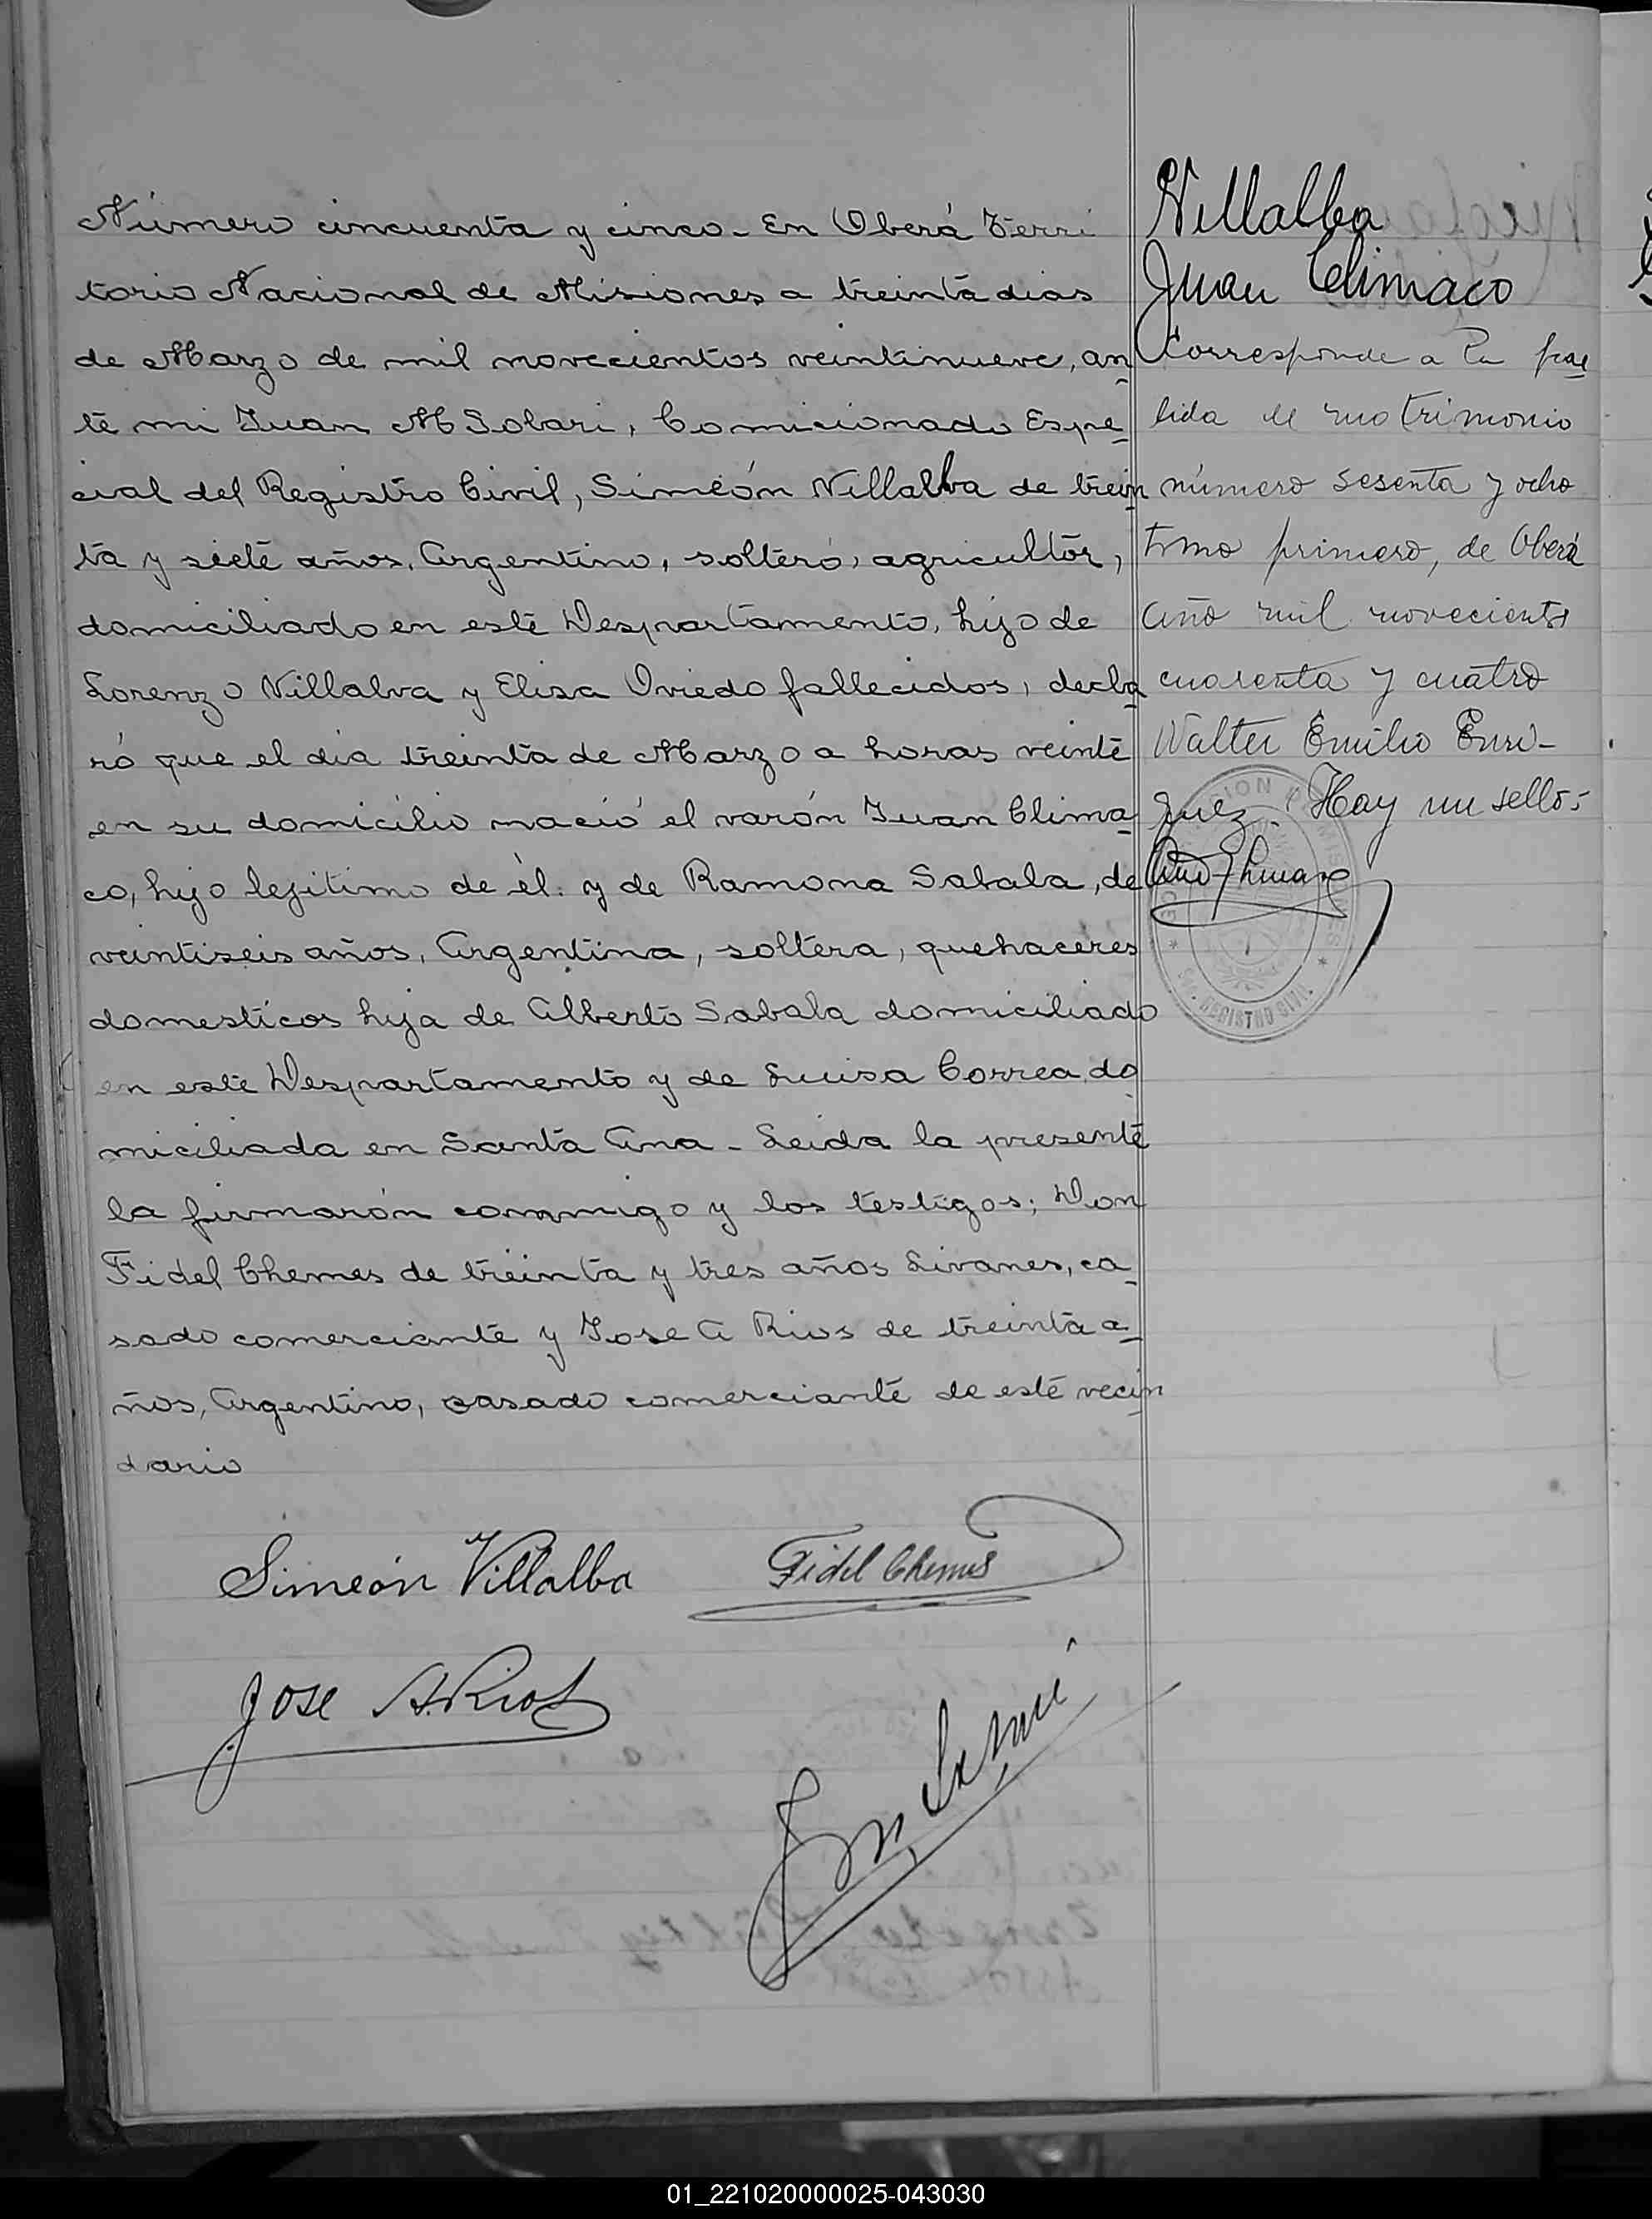 Número cincuenta y cinco - En Oberá Terri
torio Nacional de Misiones a treinta dias
de Marzo de mil novecientos veintinueve, an
te mi Juan M Solari, Comicionado Espe
cial del Registro Civil, Simeón Villalba de trein
ta y siete años, Argentino, soltero, agricultor,
domiciliado en este Departamento, hijo de
Lorenzo Villalva y Elisa Oviedo fallecidos, decla
ró que el dia treinta de Marzo a horas veinte
en su domicilio nació el varón Juan Clima
co, hijo legitimo de él y de Ramona Sabala, de
veintiseis años, Argentina, soltera, quehaceres
domesticos hija de Alberto Sabala domiciliado
en este Departamento y de Luisa Correa do
miciliada en Santa Ana - Leida la presente
la firmarón conmigo y los testigos; Don
Fidel Chemes de treinta y tres años Livanes, ca
sado comerciante y Jose A Rios de treinta a
ños, Argentino, casado comerciante de este vecin
dario
Simeón Villalba
Fidel Chemes
Jose A. Rios
Villalba
Juan Climaco
Corresponde a la par
tida de matrimonio
número sesenta y ocho
tomo primero, de Oberá
año mil novecientos
cuarenta y cuatro
Walter Emilio Enri-
quez. Hay un sello.-
REGISTRO CIVIL
MISIONES
01_221020000025-043030